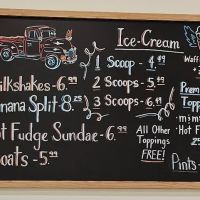 Ice-Cream
1 Scoop - 4.49
2 Scoops - 5.49
3 Scoops - 6.49
All Other
Toppings
FREE!
ilkshakes - 6.99
nana Split - 8.25
t Fudge Sundae - 6.99
oats - 5.99
Waff
Prem
Topp
m&m
Hot F
Pints -